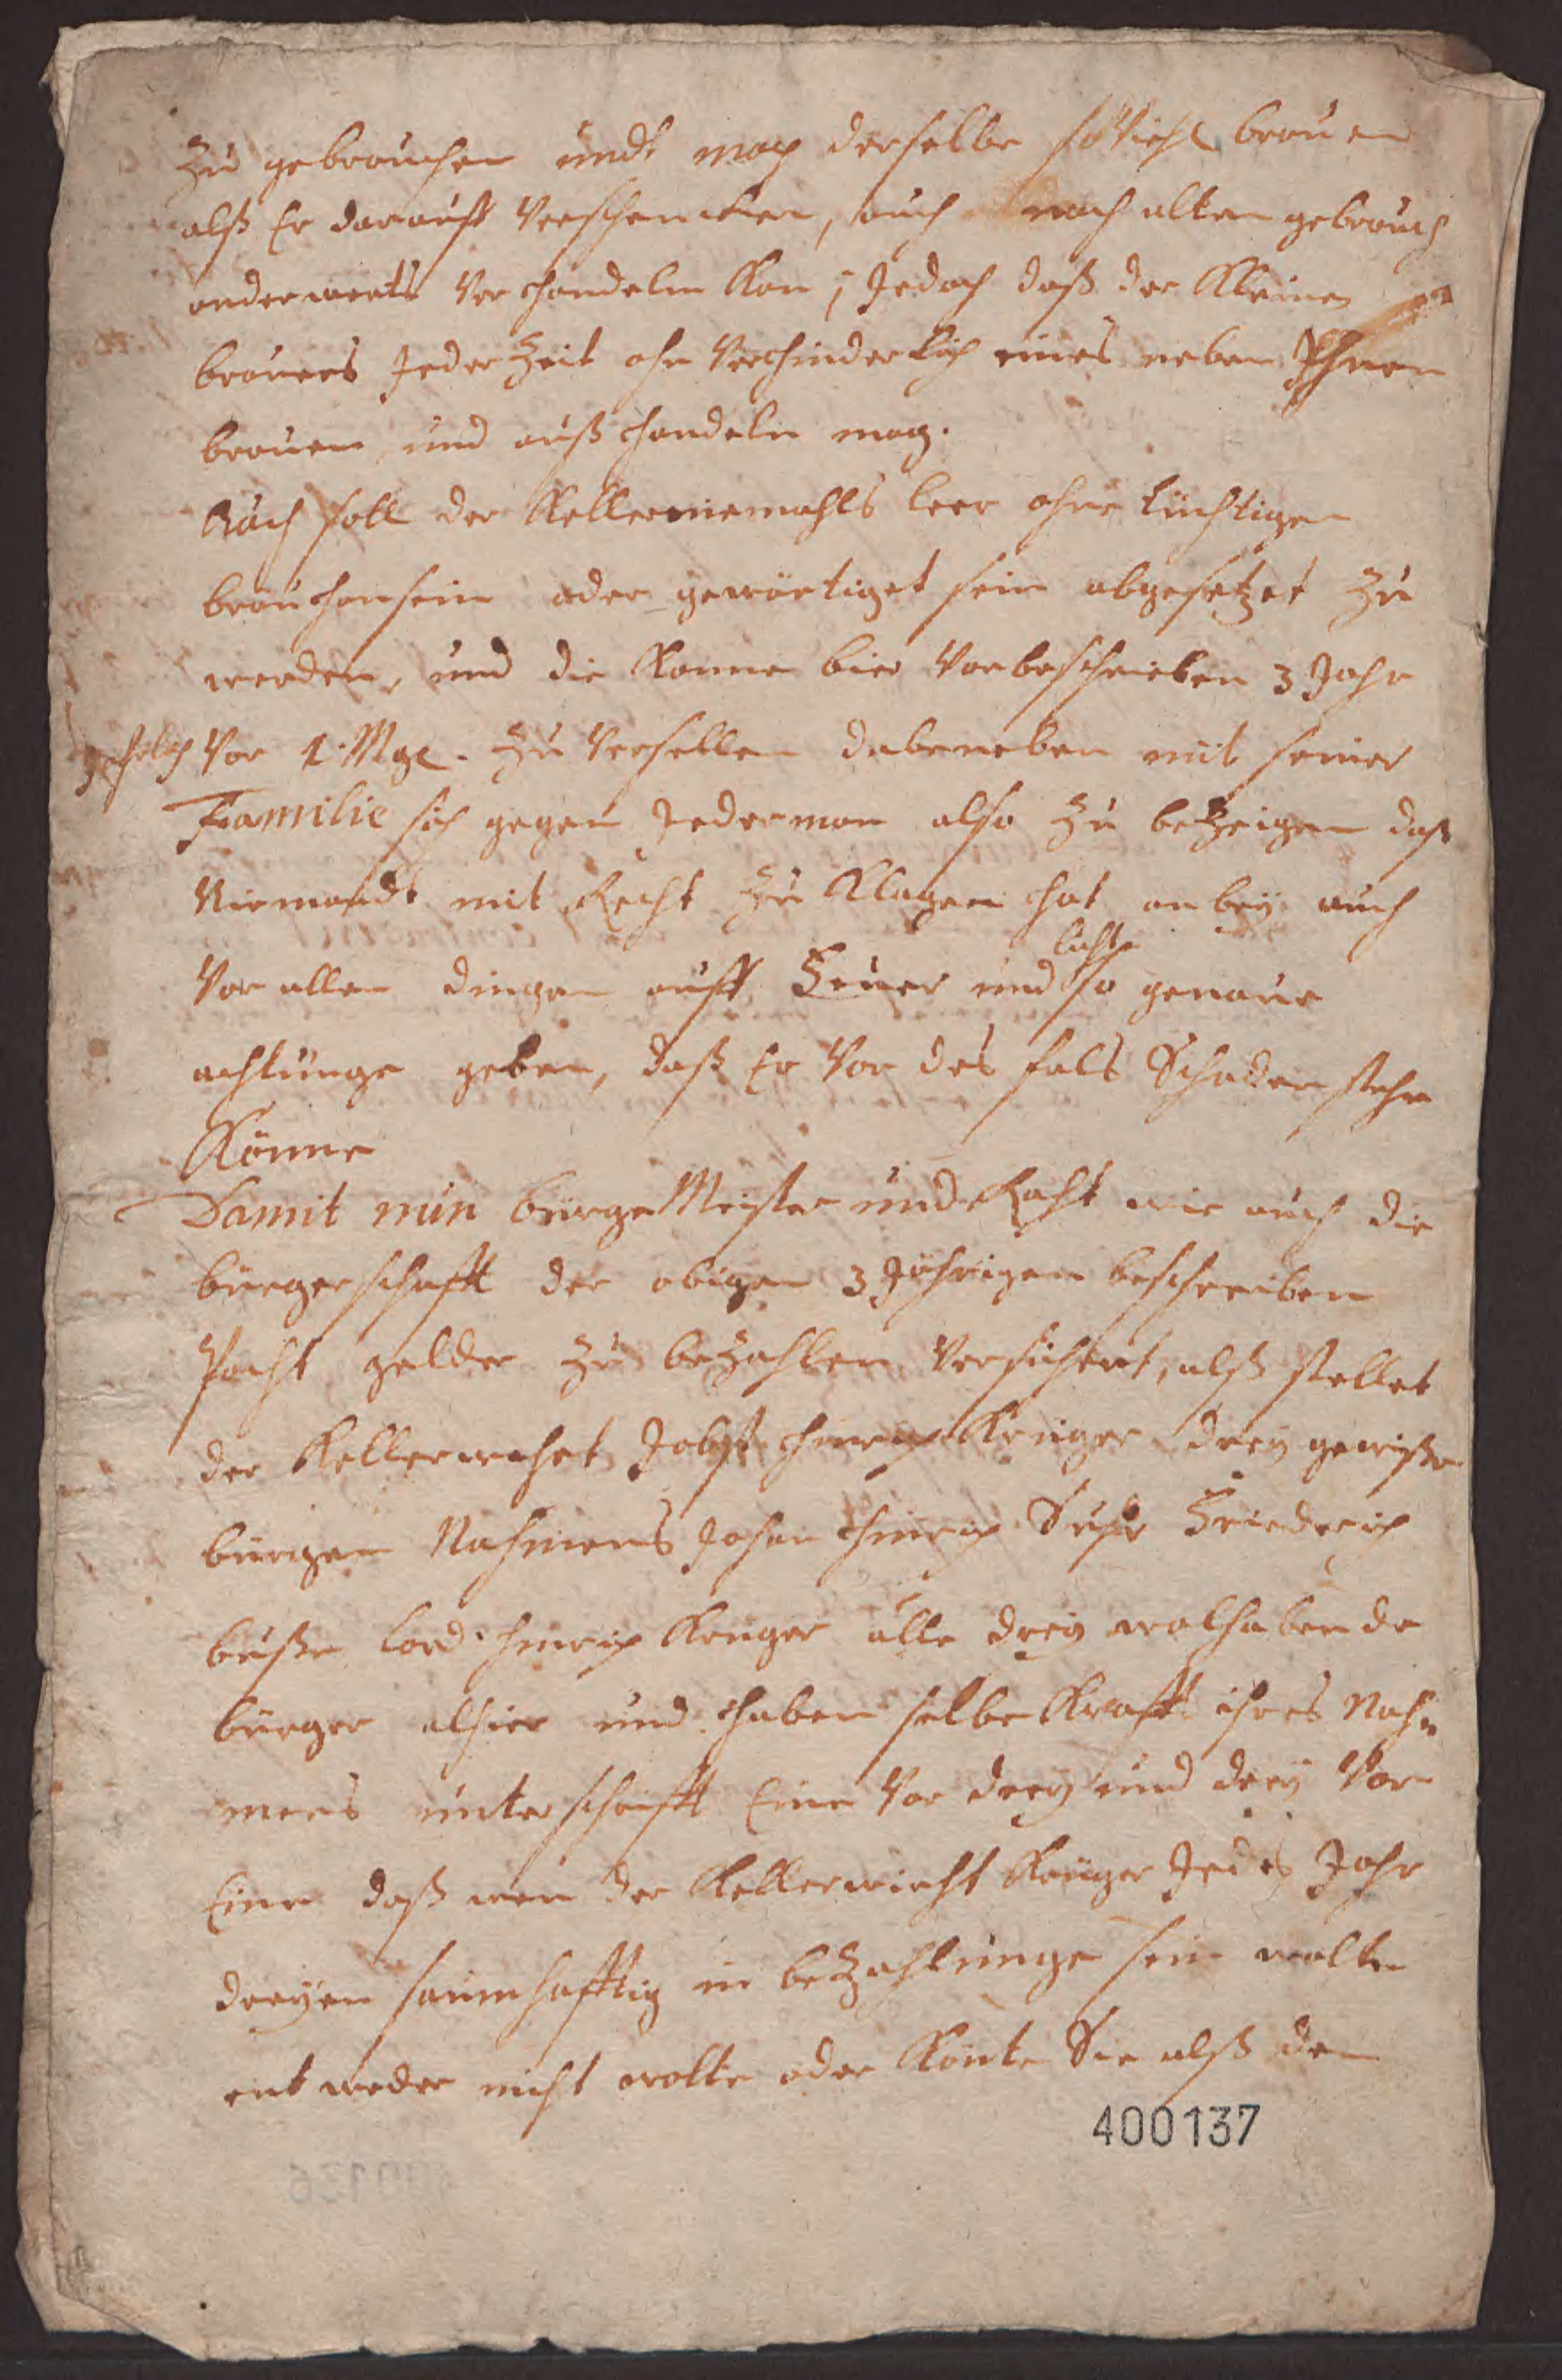 Zu gebrauchen undt mag derselbe so Viehl brauen
alß Er darauff Verschencken, auch nach alten gebrauch
anderwerts Verhandeln Kan, Jedoch daß der Kleine
brauers Jeder Zeit ohn Verhinderlich eines neben Ihnen
brauen und außhandeln mag.
Auch soll der Keller niemahls leer ohne tüchtigen
brauhan sein oder gewärtiget sein abgesetzet zu
werden, und die Kanne bier Vorbeschrieben 3 Jahr
Vor 1 Mgl. zu Versellen dabeneben mit seiner
Familie sich gegen Jederman also zu bezeigen daß
Niemandt mit Recht zu Klagen hat anbey auch
licht
Vor allen dingen auff Feuer und so genaue
achtunge geben, daß Er Vor des fals Schaden stehn
Könne
Damit nun bürgeMeister und Raht wie auch die
bürgerschafft der obigen 3 Jährigen beschreiben
Pacht gelder zu bezahlen Versichert, alß stellet
der Kellerwirht Jobst Hinrich Krüger drey gewisse
bürgen Nahmens Johan Hinrich Friederich
buße Cord Hinrich Krüger alle drey wolhabende
bürger alhier und haben selbe Krafft ihres Nah=
mens unterschrifft Eine Vor drey und drey Vor
Eine daß wen der Kellerwirht Krüger Jedes Jahr
dreyen saumhafftig in beZahlunge sein wolte
entweder nicht wolte oder Könte Sie alß den
400137